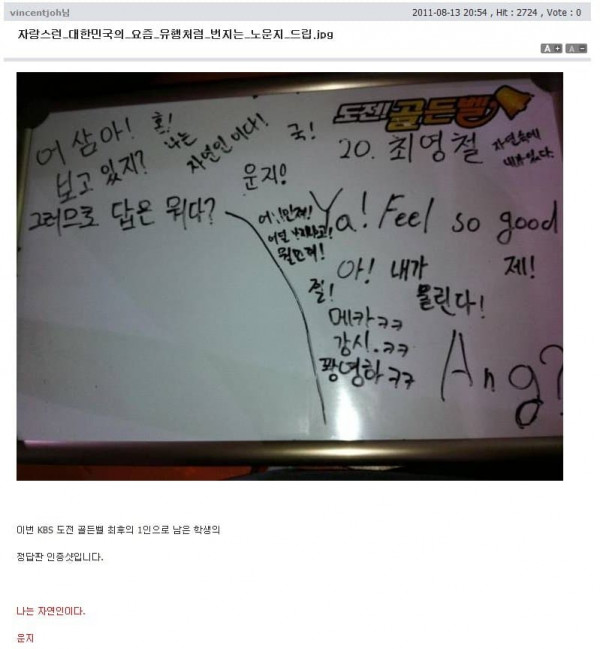 vincentjoh님
2011-08-13 20:54 , Hit : 2724 , Vote : 0
자랑스런_대한민국의_요즘_유행처럼_번지는_노운지_드립.jpg
A + A -
도전! 골든벨
20. 최영철
자연속에
내가 있다.
어 삼아!
혼!
나는
자연인이다!
국!
보고 있지?
운지!
그러므로 답은 뭐다?
Ya! Feel so good
아! 내가
제!
질!
물린다!
메카ㅋㅋ
강시.ㅋㅋ
꽝영하ㅋㅋ
Ang?
이번 KBS 도전 골든벨 최후의 1인으로 남은 학생의
정답판 인증샷입니다.
나는 자연인이다.
운지